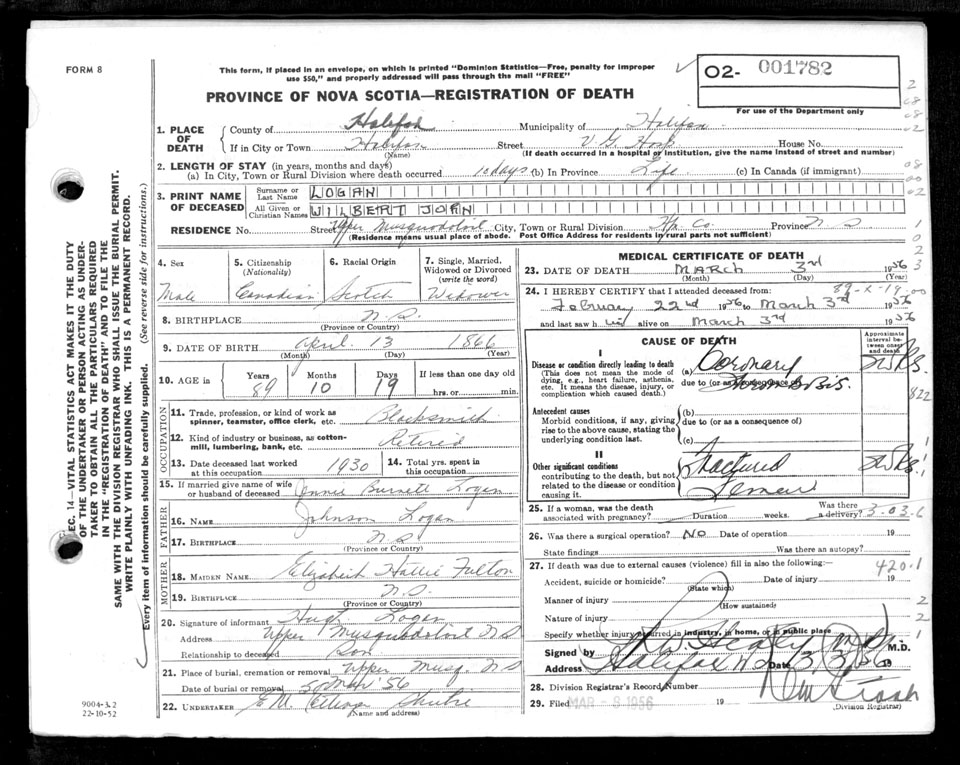 FORM 8
This form, if placed in an envelope, on which is printed "Dominion Statistics—Free, penalty for improper
use $50," and properly addressed will pass through the mail "FREE"
O2- 001782
For use of the Department only
PROVINCE OF NOVA SCOTIA—REGISTRATION OF DEATH
1. PLACE OF DEATH
County of Halifax Municipality of Halifax
If in City or Town Halifax Street V G Hosp House No.
(Name) (If death occurred in a hospital or institution, give the name instead of street and number)
2. LENGTH OF STAY (in years, months and days)
(a) In City, Town or Rural Division where death occurred 10 days (b) In Province Life (c) In Canada (if immigrant)
3. PRINT NAME OF DECEASED
Surname or Last Name LOGAN
All Given or Christian Names WILBERT JOHN
RESIDENCE No. Street Upper Musquodoboit City, Town or Rural Division Hfx Co. Province N S
(Residence means usual place of abode. Post Office Address for residents in rural parts not sufficient)
4. Sex
Male
5. Citizenship (Nationality)
Canadian
6. Racial Origin
Scotch
7. Single, Married, Widowed or Divorced (write the word)
Widower
8. BIRTHPLACE N.S.
(Province or Country)
9. DATE OF BIRTH April 13 1866
(Month) (Day) (Year)
10. AGE in Years 89 Months 10 Days 19 If less than one day old
hrs. or min.
OCCUPATION
11. Trade, profession, or kind of work as spinner, teamster, office clerk, etc. Blacksmith
12. Kind of industry or business, as cotton-mill, lumbering, bank, etc. Retired
13. Date deceased last worked at this occupation 1930
14. Total yrs. spent in this occupation
15. If married give name of wife or husband of deceased Jennie Burnett Logan
FATHER
16. NAME Johnson Logan
17. BIRTHPLACE N S
(Province or Country)
MOTHER
18. MAIDEN NAME Elizabeth Hattie Fulton
19. BIRTHPLACE N.S.
(Province or Country)
20. Signature of informant Hugh Logan
Address Upper Musquodoboit N S
Relationship to deceased Son
21. Place of burial, cremation or removal Upper Musq. N S
Date of burial or removal 5 Mar '56
22. UNDERTAKER E M
(Name and address)
MEDICAL CERTIFICATE OF DEATH
23. DATE OF DEATH MARCH 3rd 1956
(Month) (Day) (Year)
24. I HEREBY CERTIFY that I attended deceased from: 89-X-19
February 22nd 1956 to March 3rd 1956
and last saw him alive on March 3rd 1956
CAUSE OF DEATH
Approximate interval between onset and death
I
Disease or condition directly leading to death
(This does not mean the mode of dying, e.g., heart failure, asthenia, etc. It means the disease, injury, or complication which caused death.)
(a) Coronary
due to (or as a consequence of) Thrombosis.
Antecedent causes
Morbid conditions, if any, giving rise to the above cause, stating the underlying condition last.
(b)
due to (or as a consequence of)
(c)
II
Other significant conditions
contributing to the death, but not related to the disease or condition causing it.
Fractured
Femur
25. If a woman, was the death associated with pregnancy? Duration weeks. Was there a delivery?
26. Was there a surgical operation? NO Date of operation 19
State findings Was there an autopsy?
27. If death was due to external causes (violence) fill in also the following:—
420.1
Accident, suicide or homicide? Date of injury 19
(State which)
Manner of injury
(How sustained)
Nature of injury
Specify whether injury occurred in industry, in home, or in public place
Signed by M.D.
Address Halifax N S Date 3/3/56 19
28. Division Registrar's Record Number
29. Filed MAR - 9 1956 19
(Division Registrar)
SEC. 14—VITAL STATISTICS ACT MAKES IT THE DUTY
OF THE UNDERTAKER OR PERSON ACTING AS UNDER-
TAKER TO OBTAIN ALL THE PARTICULARS REQUIRED
IN THE "REGISTRATION OF DEATH" AND TO FILE THE
SAME WITH THE DIVISION REGISTRAR WHO SHALL ISSUE THE BURIAL PERMIT.
WRITE PLAINLY WITH UNFADING INK. THIS IS A PERMANENT RECORD.
Every item of information should be carefully supplied. (See reverse side for instructions.)
9004-3.2
22-10-52